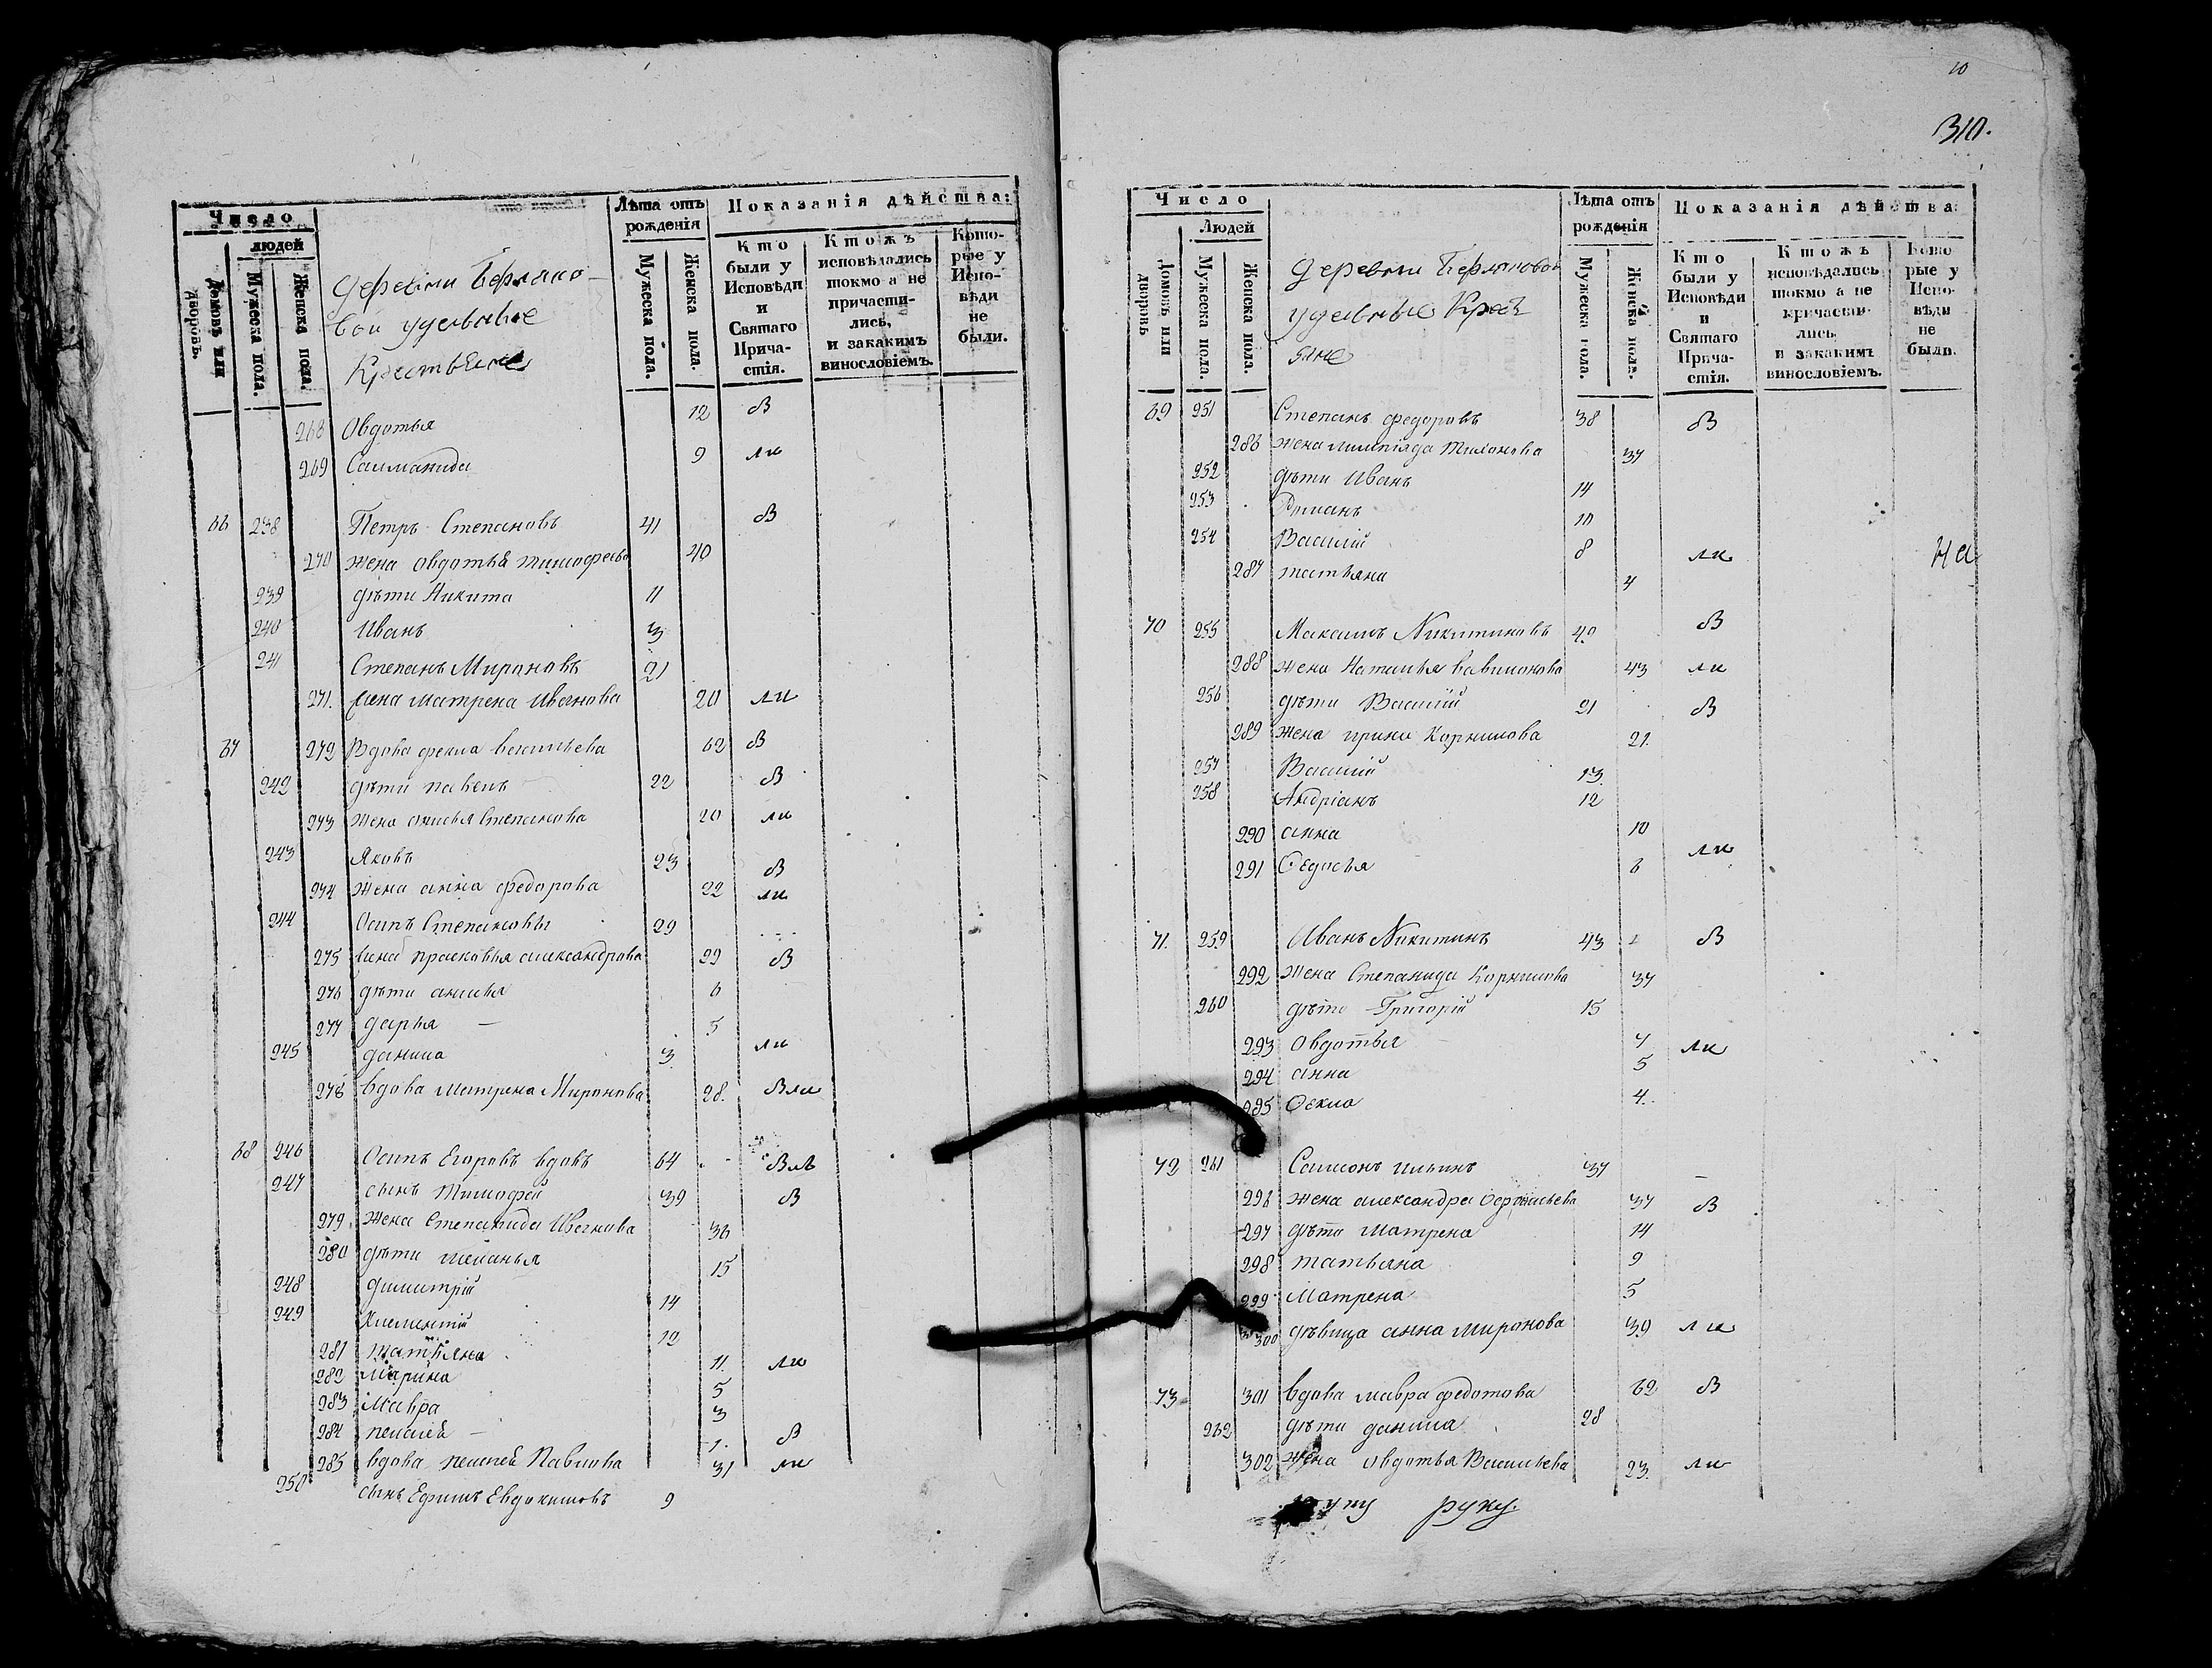 Число
людей
Домовъ или дворовъ.
Мужеска пола.
Женска пола.
деревни Бермяко-
вои удельные
Крестьяне
Лѣта отъ рожденія
Мужеска пола.
Женска пола.
Показанія дѣйства:
Кто были у Исповѣди и Святаго Прича-стія.
Ктожъ исповѣдались токмо а не причасти-лись, и закакимъ винословіемъ.
Кото-рые у Испо-вѣди не были.
268 Овдотья 12 в
269 9 ли
66 238 Петръ Степановъ 41 в
270 жена овдотья тимофеева 40
239 дѣти Никита 11
240 Иванъ 3
241 Степанъ Мироновъ 21
271. жена матрена иванова 20 ли
67 272 Вдова фекла васильева 62 в
242 дѣти павелъ 22 в
273 жена анисья степанова 20 ли
243 Яковъ 23 в
274 жена анна федорова 22 ли
244 Осипъ Степановъ 29
275 жена прасковья александрова 29 в
276 дѣти анисья 6
277 дарья — 5
245 данила 3 ли
278 вдова матрена Миронова 28. вли
68 246 Осипъ Егоровъ вдовъ 64 вли
247 сынъ Тимофей 39 в
279. жена степанида Иванова 36
280 дѣти меланья 15
248 димитрій 14
249 Климентій 12
281 татьяна 11. ли
282 Марина 5
283 Мавра 3
284 пелагея — 1. в
285 вдова пелагея Павлова 31 ли
250 сынъ Ефимъ Евдокимовъ 9
10
310.
Число
Людей
Домовъ или дворовъ
Мужеска пола.
Женска пола.
деревни Бермяковой
удельные Кресть
яне
Лѣта отъ рожденія
Мужеска пола.
Женска пола.
Показанія дѣйства
Кто были у Исповѣди и Святаго Прича-стія.
Ктожъ исповѣдались токмо а не причасти-лись, и закакимъ винословіемъ.
Кото-рые у Испо-вѣди не были.
69 251 Степанъ федоровъ 38 в
286 жена 37
252 дѣти Иванъ 14
253 Романъ 10
254 Василій 8 ли на
287 татьяна 4
70 255 Максимъ Никитиновъ 42 в
288 жена Наталья вавилонова 43 ли
256 дѣти Василій 21 в
289 жена ирина Корнилова 21.
257 Василій 13.
258 Андріанъ 12
290 анна 10 ли
291 Ѳедосья 6
71. 259 Иванъ Никитинъ 43 в
292 жена Степанида Корнилова 37
260 дѣти Григорій 15
293 овдотья 7 ли
294 анна 5
295 Ѳекла 4.
72 261 Самсонъ ильинъ 37 —
296 жена александра 37 в
297 дѣти матрена 14
298 татьяна 9
299 Матрена 5
300 дѣвица анна миронова 39 ли
73 301 вдова мавра федотова 62 в
262 дѣти данила 28
302 жена овдотья Васильева 23. ли
руку.